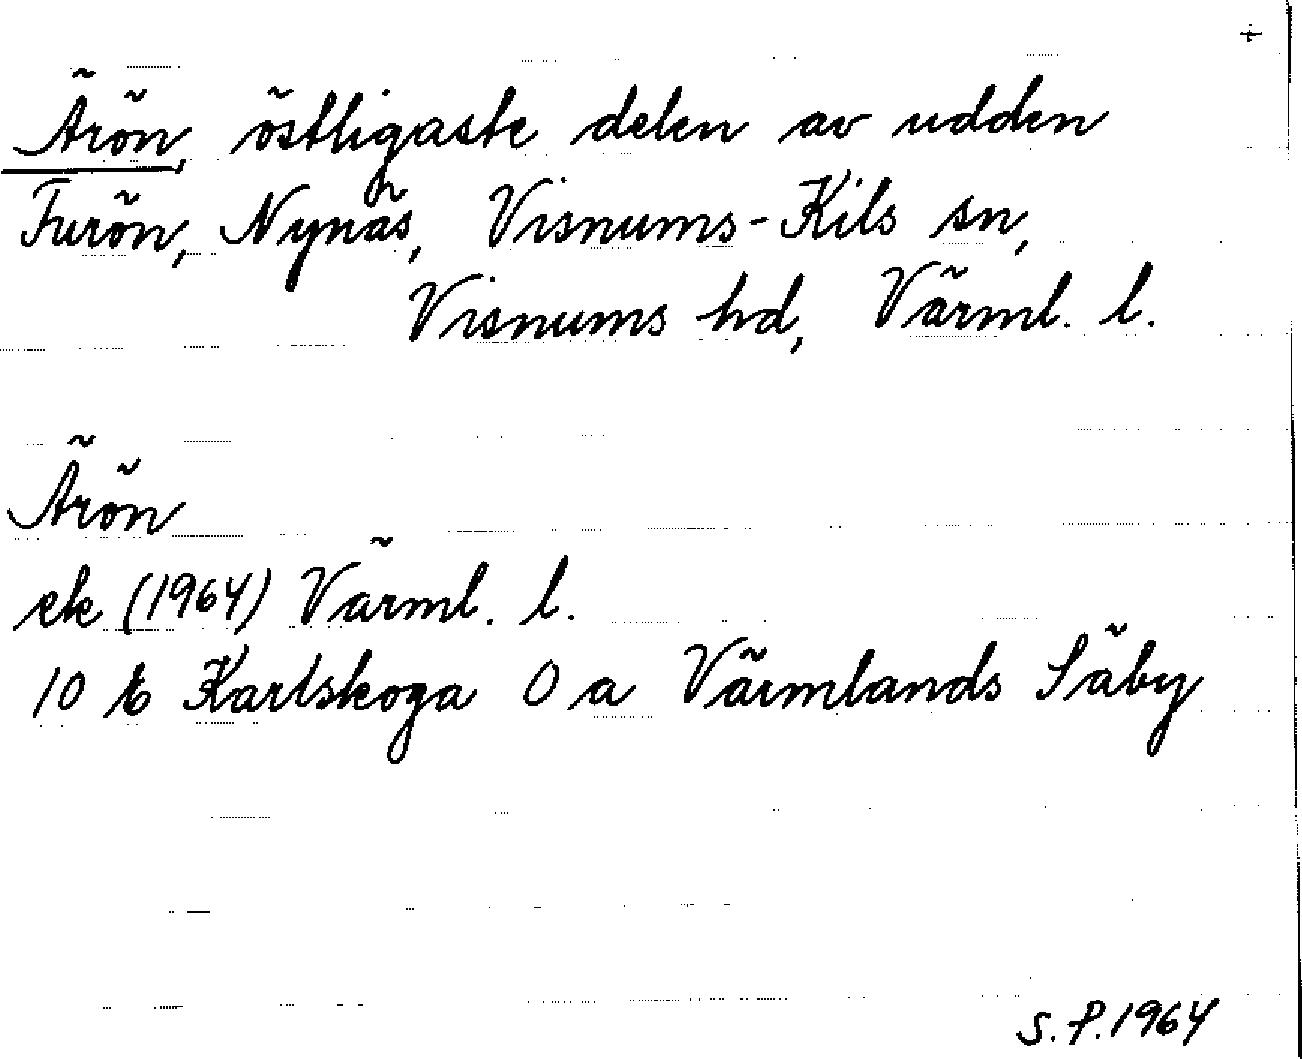 +
Ärön, östligaste delen av udden
Furön, Nynäs, Visnums-Kils sn,
Visnums hd, Värml. l.
Ärön
ek (1964) Värml. l.
10 E Karlskoga 0 a Värmlands Säby
S. P. 1964